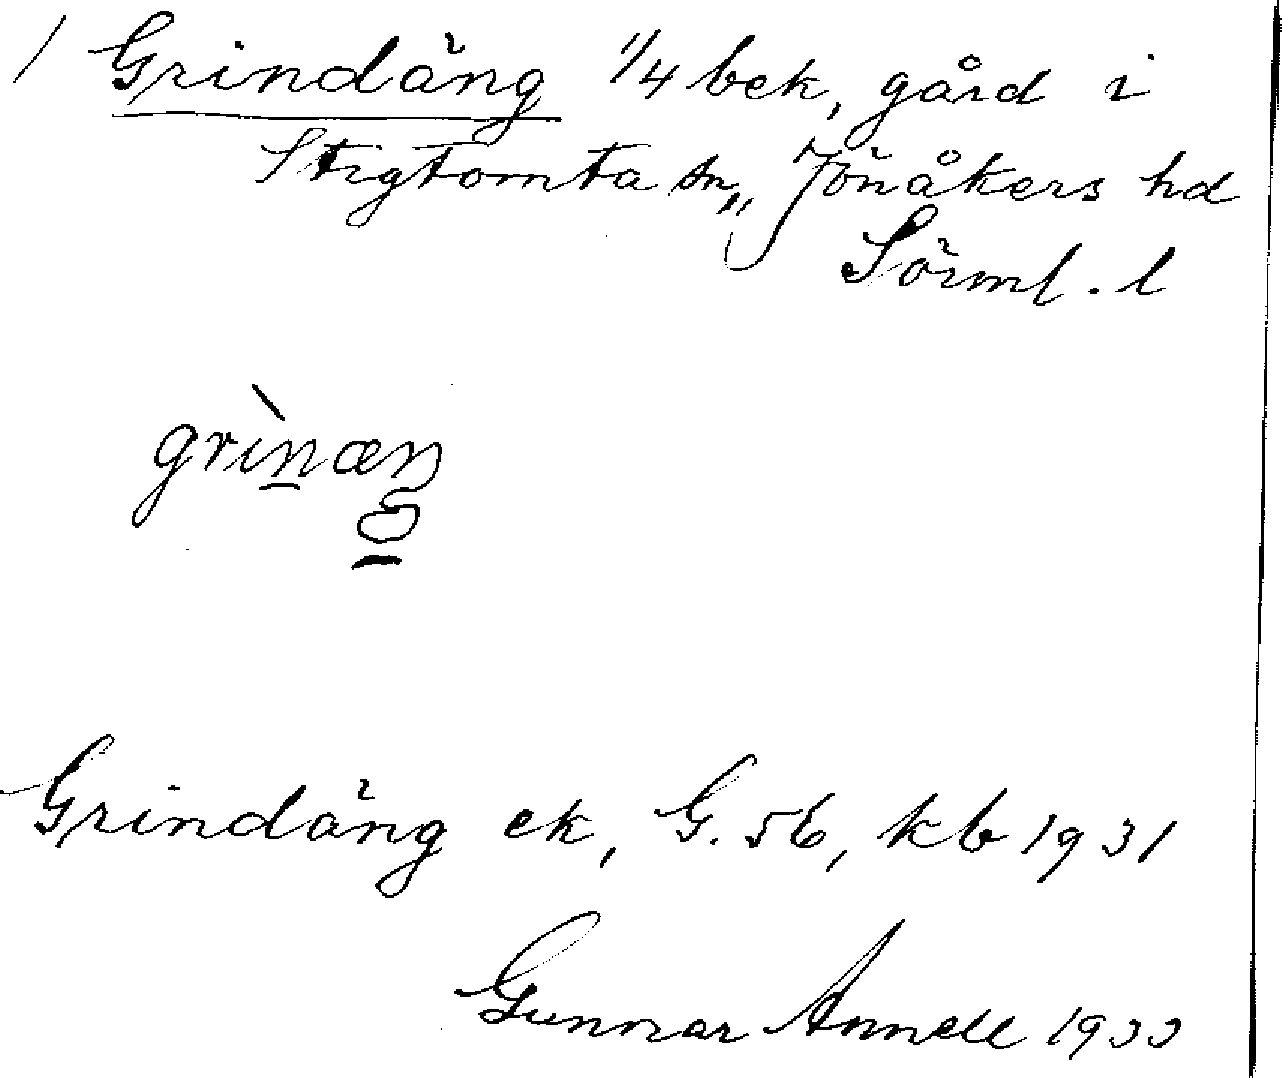 / Grindäng 1/4 bek, gård i
Stigtomta sn, Jönåkers hd
Sörml. l
grìnæŋ
Grindäng ek, G. 56, kb 1931
Gunnar Annell 1933